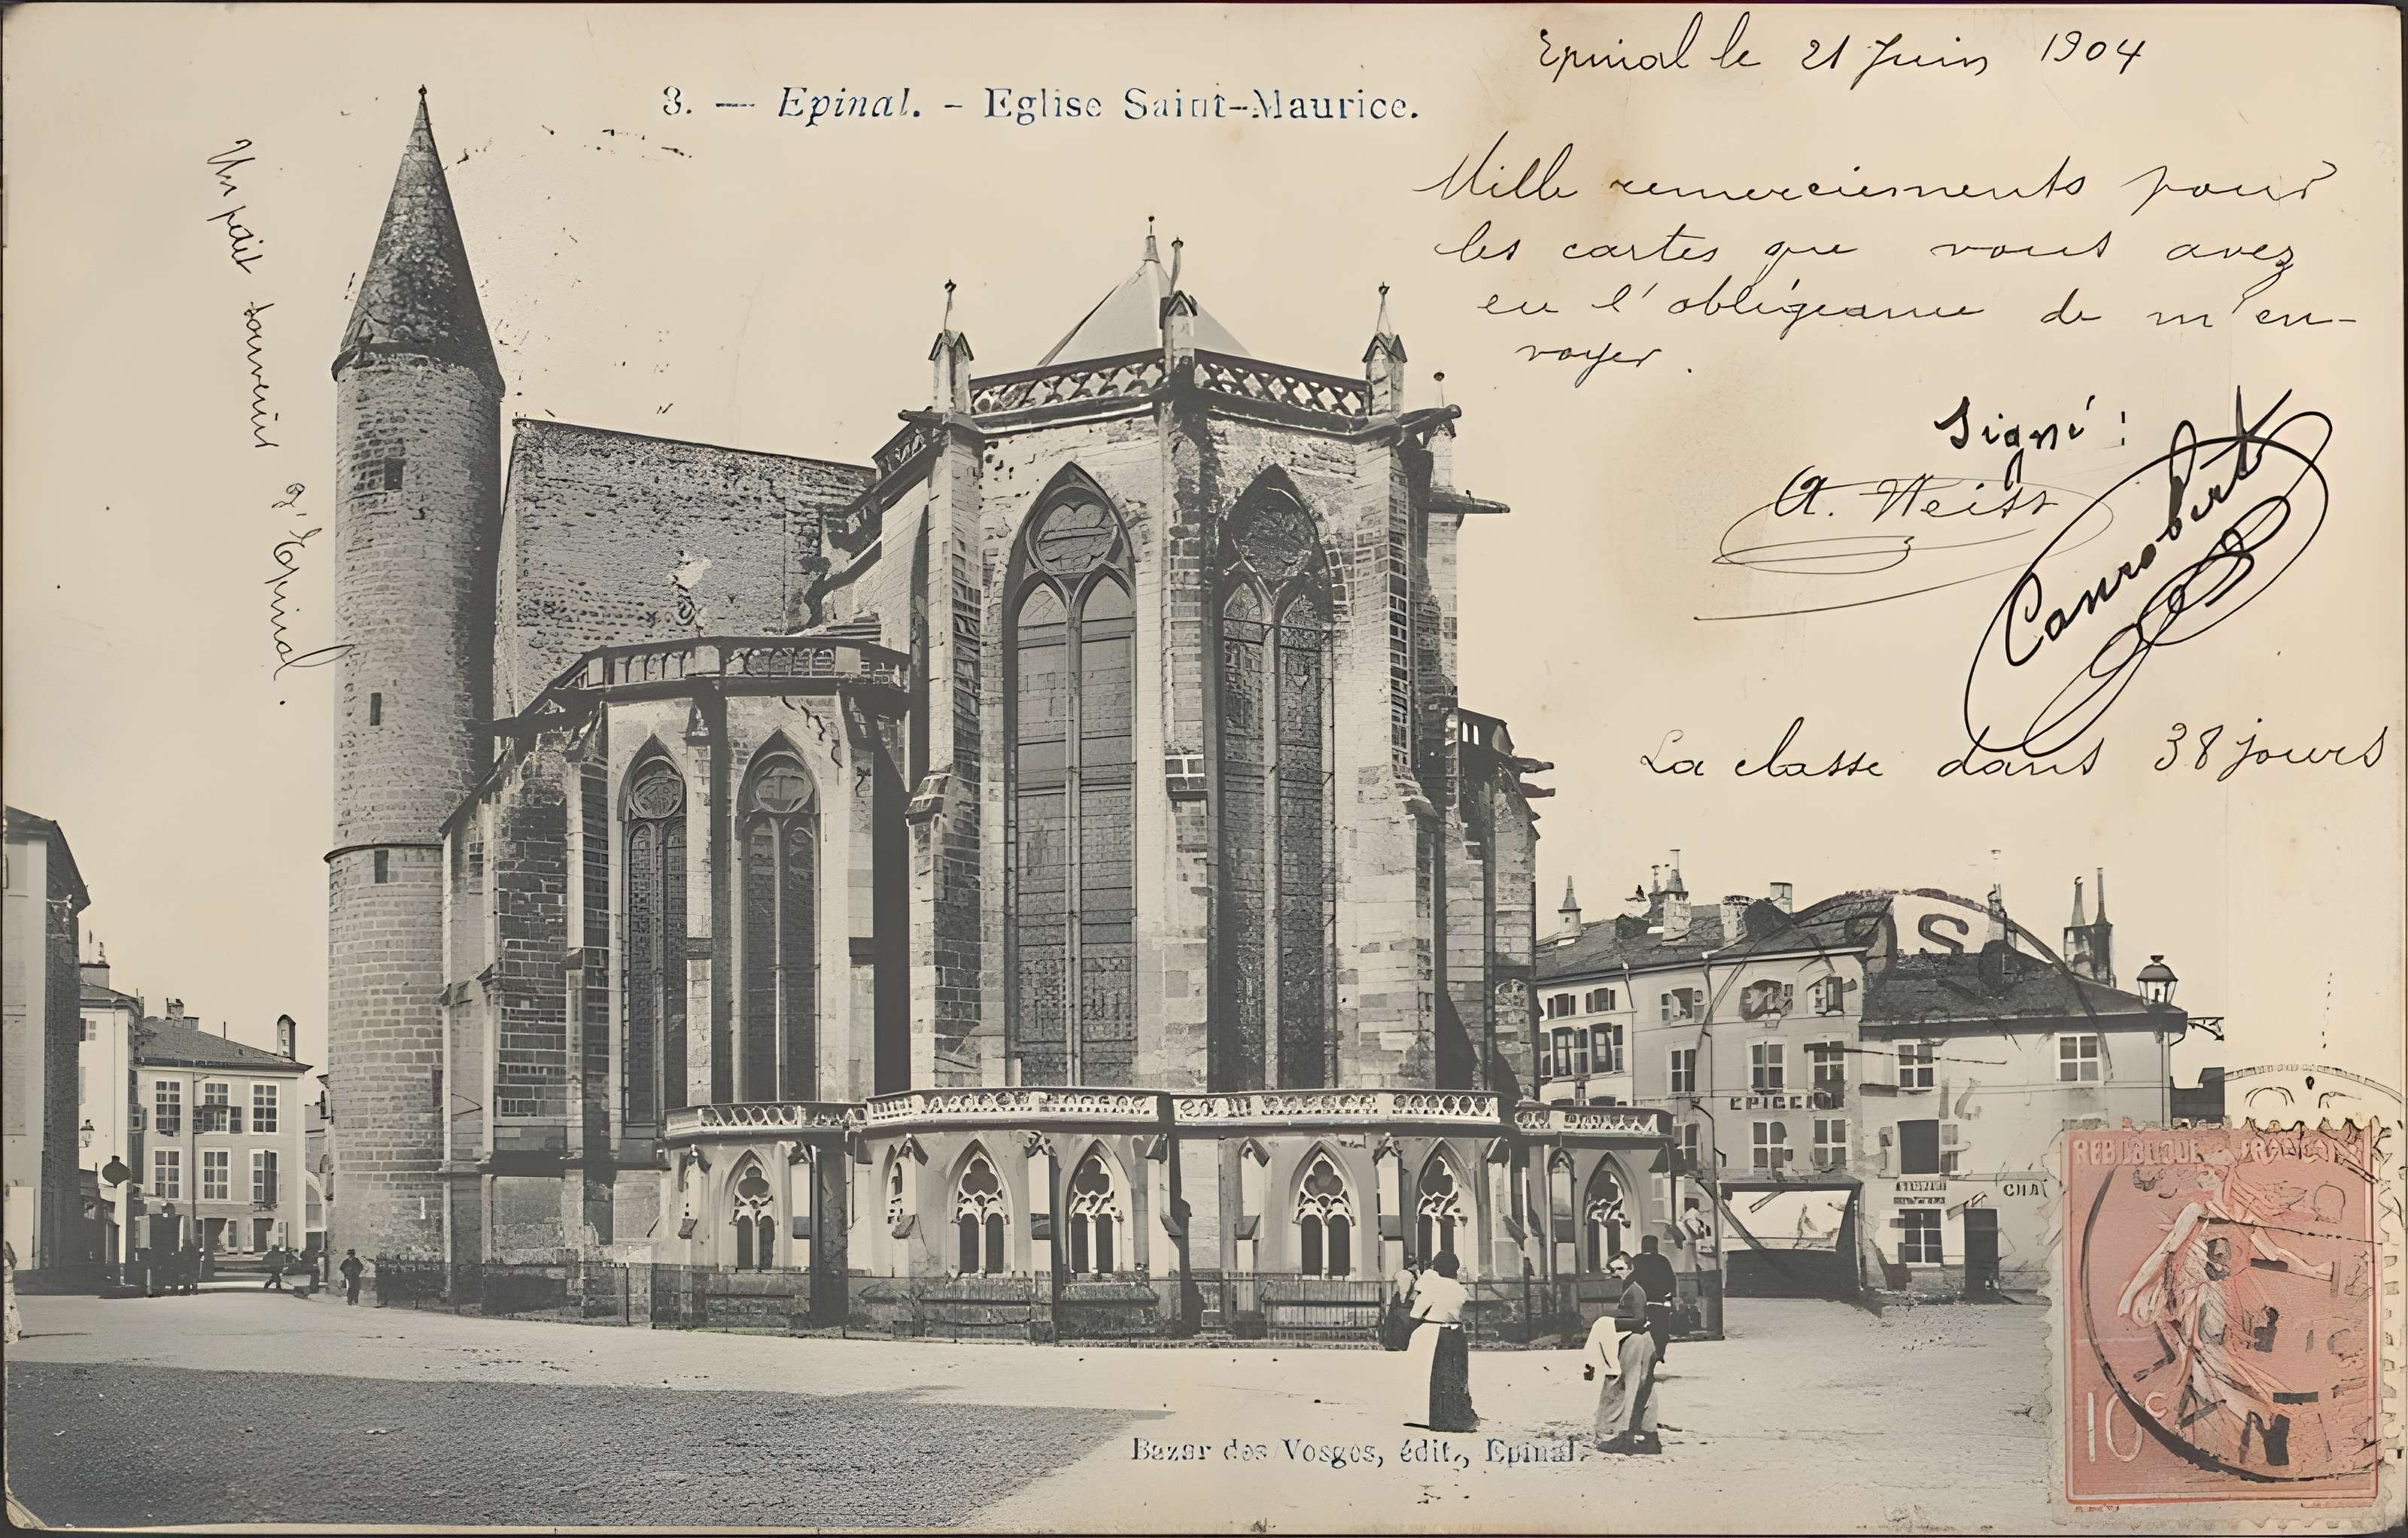 Epinal le 21 Juin 1904
3. — Epinal. - Eglise Saint-Maurice.
Mille remerciements pour
les cartes que vous avez
eu l'obligeance de m'en-
voyer.
Un petit souvenir d'Epinal.
Signé :
A. Weiss
Canrobert
La classe dans 38 jours
S
EPICERIE
CHA
REPUBLIQUE FRANÇAISE
10c
Bazar des Vosges, édit., Epinal.